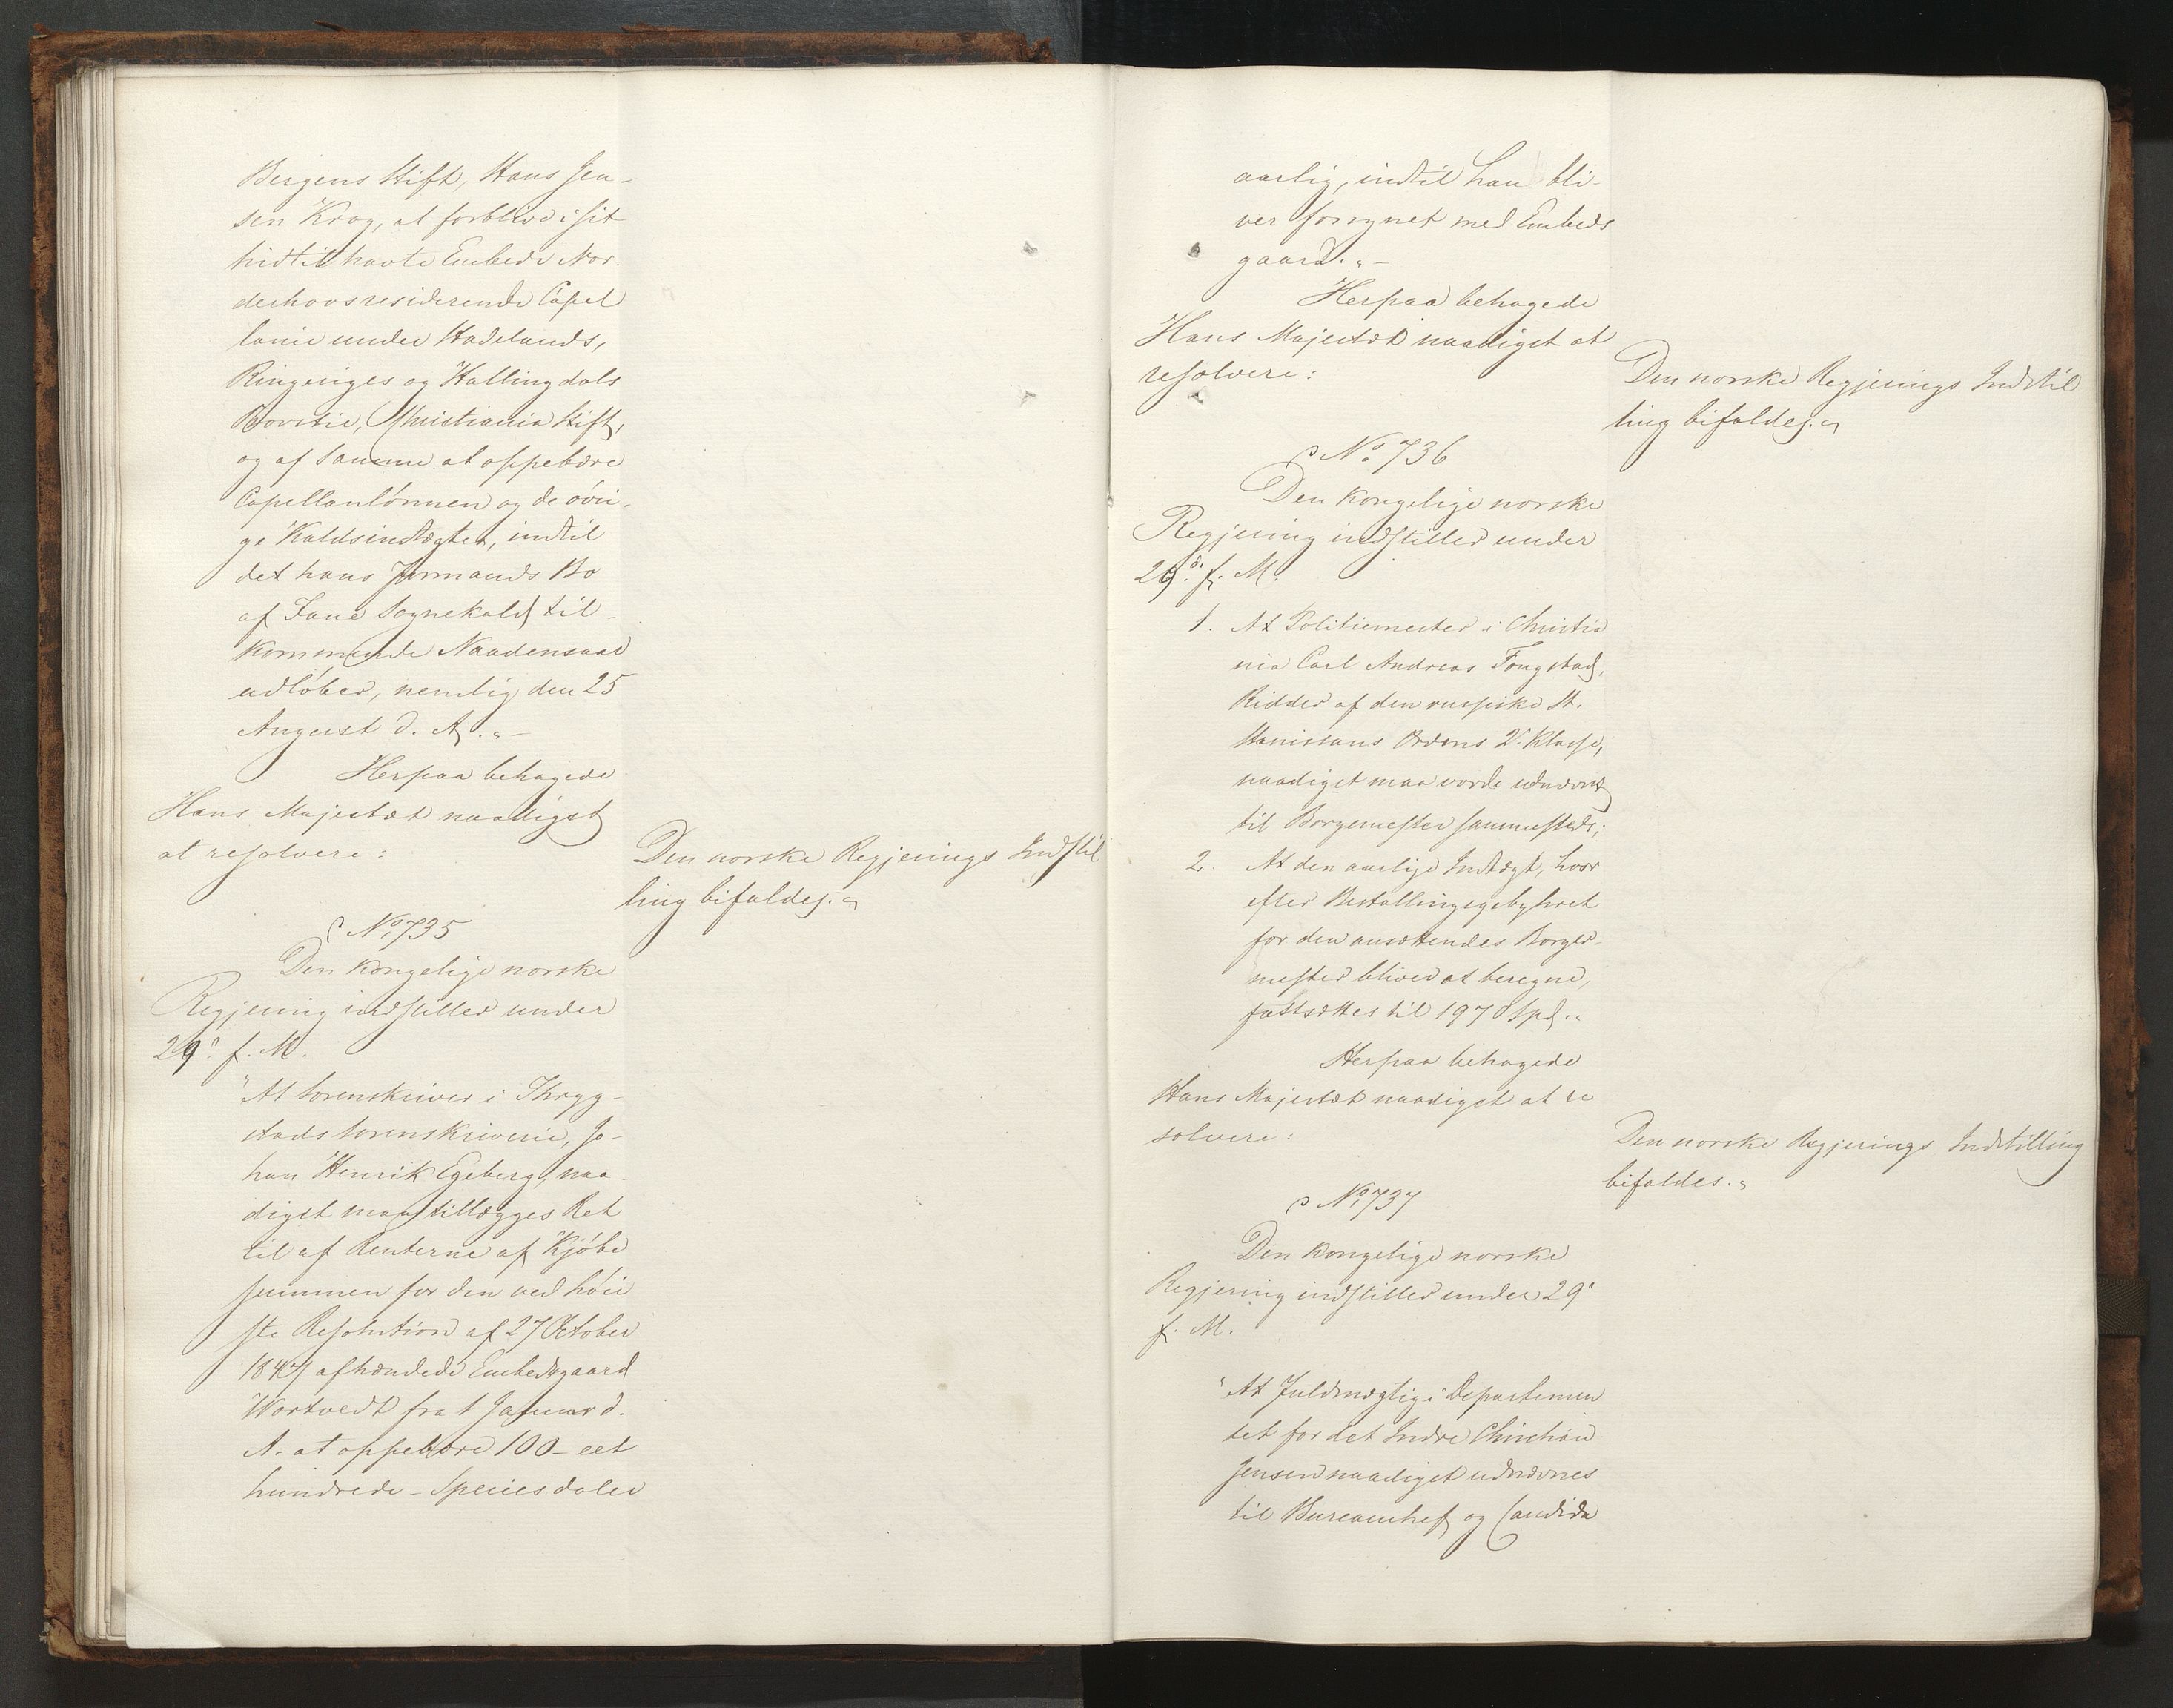 Bergens Stift, Hans Jen-
sen Krog, at forblive i sit
hidtil havte Embede Nor-
derhovs residerende Capel
lanie under Hadelands,
Ringeriges og Hallingdals
Provstie, Christiania Stift,
og af samme at oppebære
Capellanlønnen og de øvri-
ge Kaldsindtægter, indtil
det hans Formands Bo
af Fane Sognekald til-
kommende Naadensaar
udløber, nemlig den 25
August d. A."-
Herpaa behagede
Hans Majestæt naadigst
at resolvere:
Den norske Regjerings Indstil
ling bifaldes."
No 735
Den kongelige norske
Regjering indstiller under
29d. f. M.
"At Sorenskriver i Thryg-
stads Sorenskriverie, Jo-
han Henrik Egeberg, naa-
digst maa tillægges Ret
til af Renterne af Kjøbe
summen for den ved høie
ste Resolution af 27 October
1847 afhændede Embedsgaard
Wortvedt fra 1 Januar d.
A. at oppebære 100 - eet
hundrede - Speciesdaler
aarlig, indtil han bli-
ver forsynet med Embeds
gaard."-
Herpaa behagede
Hans Majestæt naadigst at
resolvere:
Den norske Regjerings Indstil
ling bifaldes."
No 736
Den kongelige norske
Regjering indstiller under
29d. f. M.
1. At Politiemester i Christia
nia Carl Andreas Fougstad,
Ridder af den russiske St.
Stanislaus Ordens 2n Klasse,
naadigst maa vorde udnævnt
til Borgemester sammesteds;
2. At den aarlige Indtægt, hvor
efter Bestallingsgebyhret
for den ansættendes Borger-
mester bliver at beregne,
fastsættes til 1970 Spd."
Herpaa behagede
Hans Majestæt naadigst at re
solvere:
Den norske Regjerings Indstilling
bifaldes."
No 737
Den kongelige norske
Regjering indstiller under 29d
f. M.
"At Fuldmægtig i Departemen
tet for det Indre Christian
Jensen naadigst udnævnes
til Bureauchef og Candida